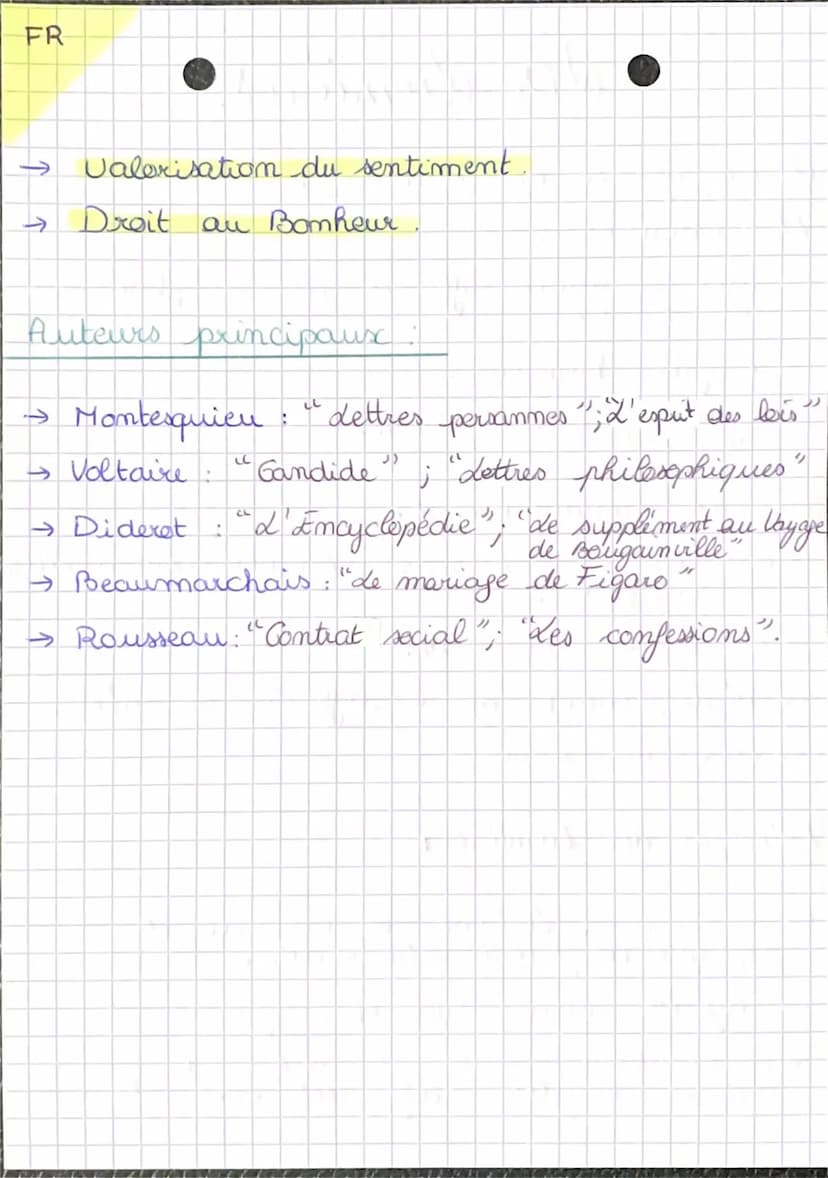 FR
→ Valorisation du sentiment.
→ Droit au Bonheur.
Auteurs principaux :
→ Montesquieu : "Lettres persannes"; "L'esprit des lois"
→ Voltaire : "Candide" ; "Lettres philosophiques"
→ Diderot : "L'Encyclopédie"; "Le supplément au Voyage
de Bougainville"
→ Beaumarchais : "Le mariage de Figaro"
→ Rousseau : "Contrat social"; "Les confessions".